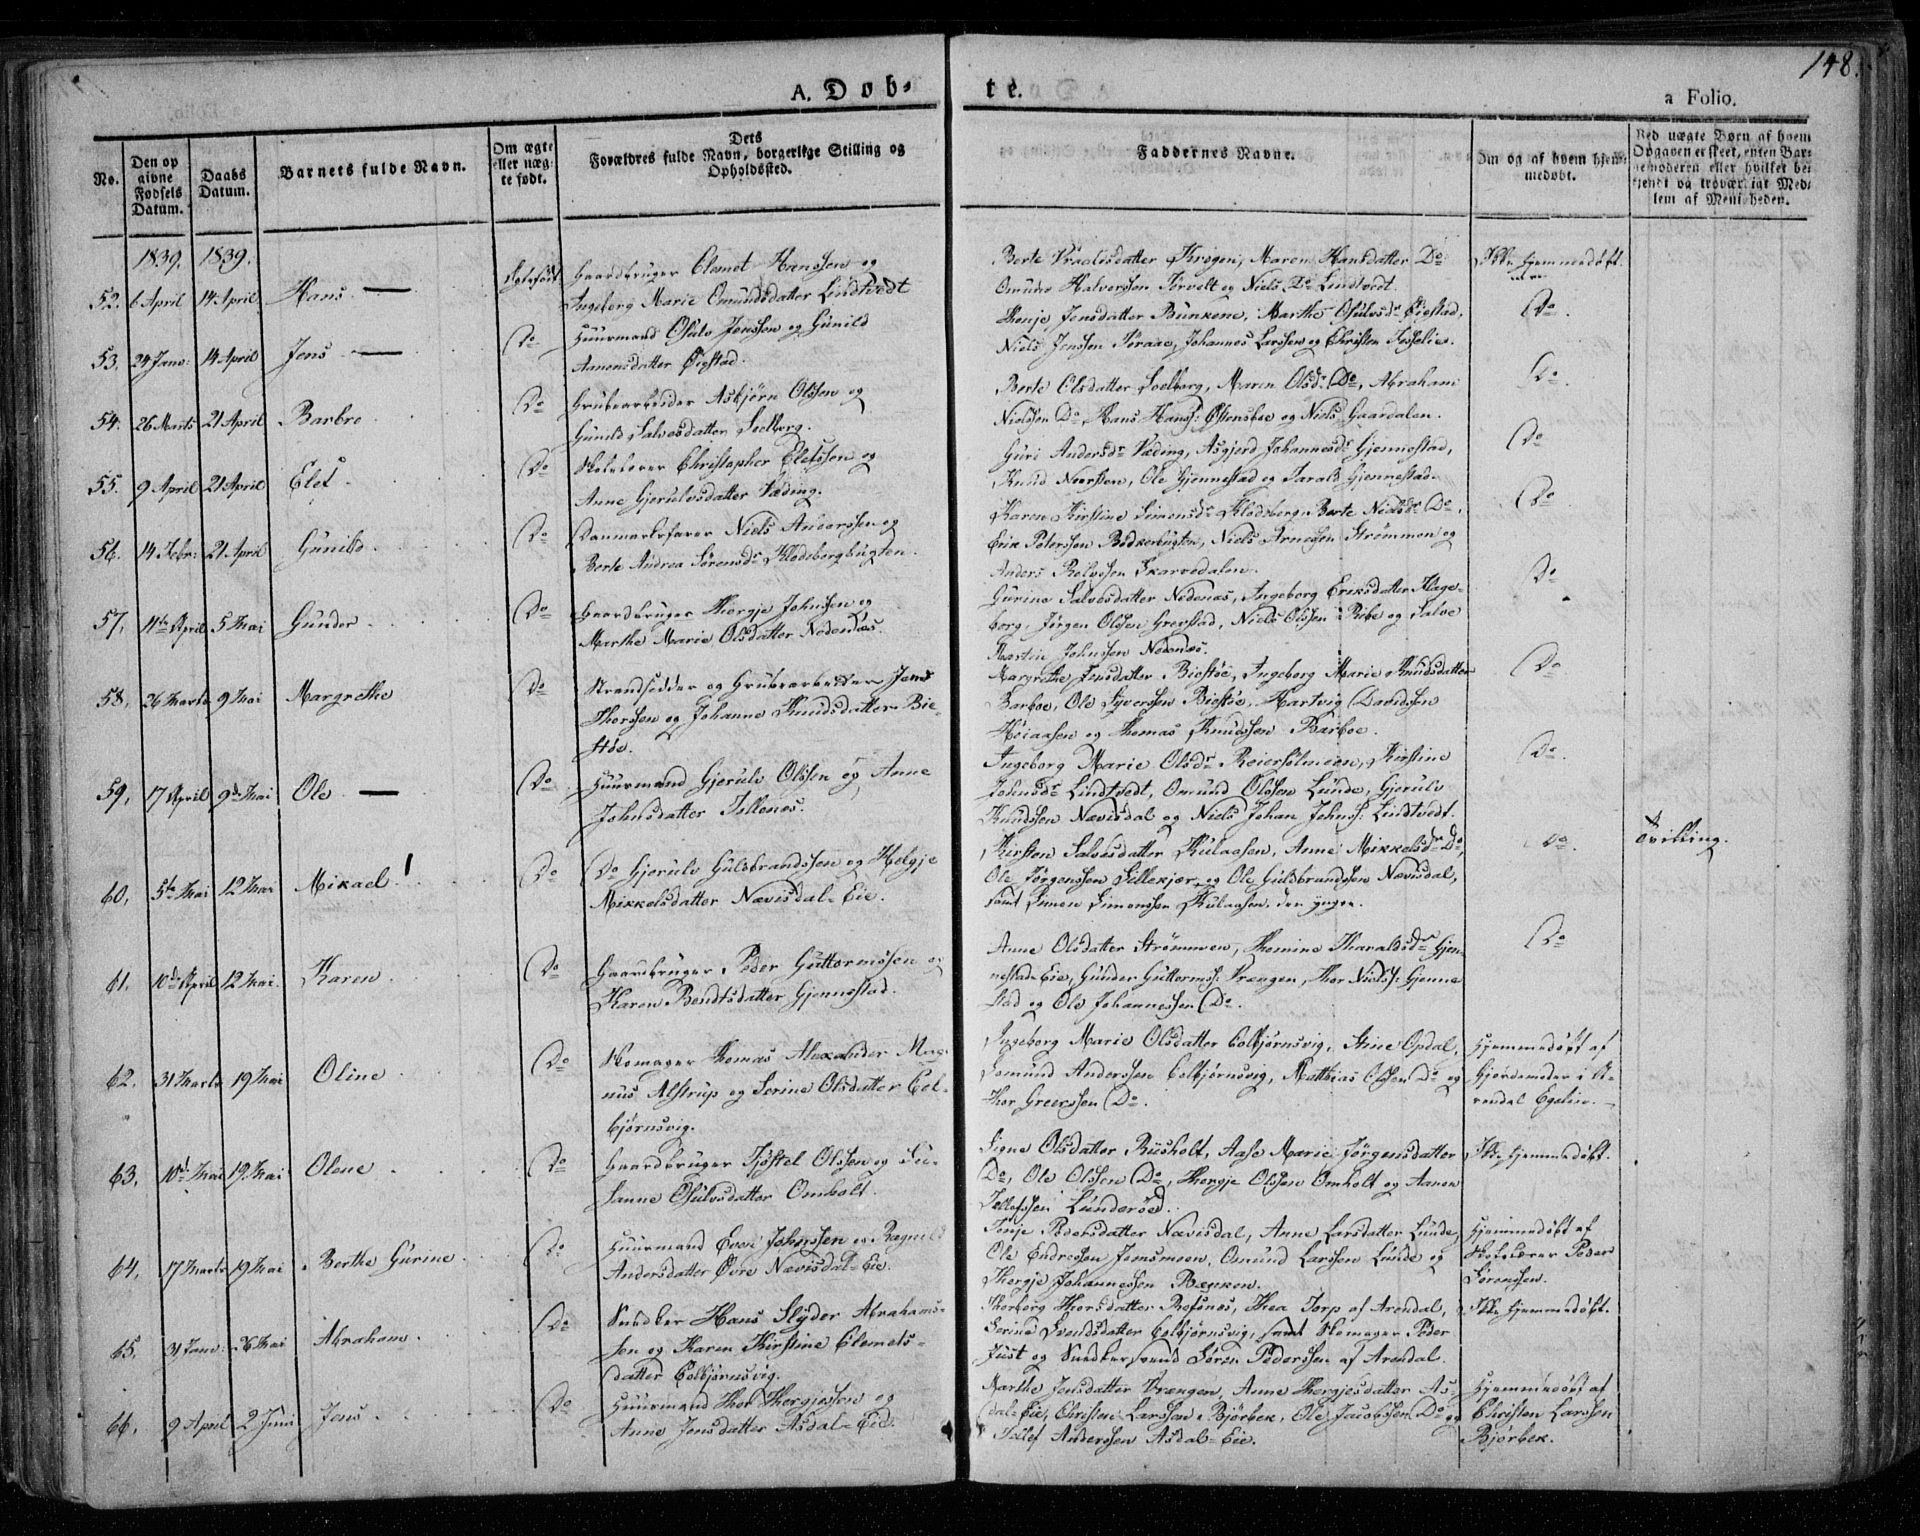 148.
A. Døb-
te.
a Folio.
No.
Den op
givne
Fødsels
Datum.
Daabs
Datum.
Barnets fulde Navn.
Om ægte
eller uæg-
te født.
Dets
Forældres fulde Navn, borgerlige Stilling og
Opholdssted.
Faddernes Navne.
Om og af hvem hjem-
medøbt.
Ved uægte Børn af hvem
Opgaven er skeet, enten Bar-
nemoderen eller hvilket be-
kjendt og troværdigt Med-
lem af Menigheden.
1839. 1839.
52. 6 April 14 April Hans Ægtefødt
Gaardbruger Clemet Hanssen og
Ingeborg Marie Omundsdatter Lindtvedt
Berte Hansdatter Do
Omund Halvorssen og Niels Do Lindtvedt.
Ikke hjemmedøbt
53. 24 Janr: 14 April Jens Do
Huusmand Osulv Jenssen og Gunild
Aanonsdatter Øigstad.
Thonje Jensdatter Bunkene, Marthe Osulvsdr Øiestad,
Niels Jenssen Johannes Larssen og Christen
Do.
54. 26 Marts 21 April Barbro Do
Grubearbeider Asbjørn Olssen og
Gunild Salvesdatter Solberg.
Berte Olsdatter Solberg, Maren Olsdr Do, Abraham
Nielssen Do, Hans Hanss: Østensboe og Niels Gaardalen.
Do.
55. 9 April 21 April Elef Do
Christopher Elefssen og
Anne Gjerulvsdatter Væding.
Guri Andersdr Væding, Asgjerd Johannesdr Gjennestad,
Knud Ole Gjennestad og Tarald Gjennestad.
Do
56. 14 Febr: 21 April Gunild Do
Danmarksfarer Niels Anderssen og
Berte Andrea Sørensdr Klodeborgbugten.
Karen Kirstine Simonsdr Klodeborg, Berte Nielsdr Do,
Erik Peterssen Niels Arnesen Strømmen og
Anders Skarvedalen.
Do
57, 14de April 5 Mai Gunder Do
Gaardbruger Thergje Johnssen og
Marthe Marie Olsdatter Nedenæs.
Gurine Salvesdatter Nedenæs, Ingeborg Eriksdatter Klage-
borg, Jørgen Olssen Grevstad, Niels Olssen Ribe og Salve
Martin Johnssen Nedenæs.
Do
58, 26 Marts 9 Mai Margrethe Do
Strandsidder og Grubearbeider Jens
Thorssen og Johanne Knudsdatter Bie-
støe.
Margrethe Jensdatter Biestøe, Ingeborg Marie Knudsdatter
Barboe, Ole Syverssen Biestøe, Hartvig Davidssen
Høiaasen og Thomas Knudssen Barboe.
Do
59, 17 April 9de Mai Ole Do
Huusmand Gjerulv Olssen og Anne
Johnsdatter
Ingeborg Marie Olsdr Kirstine
Johnsdr Lindtvedt, Omund Olssen Lunde, Gjerulv
Knudssen Nævisdal og Niels Johan Johnss: Lindtvedt.
Do.
60, 5te Mai 12 Mai Mikael. Do
Do Gjerulv Guldbrandssen og Helgje
Mikkelsdatter Nævisdal-Eie.
Kirsten Salvesdatter Kulaasen, Anne Mikkelsdr Do,
Ole Jørgenssen og Ole Guldbrandssen Nævisdal,
samt Simon Simonssen Kulaasen den yngre.
Do.
Tvilling.
61, 10de April 12 Mai. Karen. Do
Gaardbruger Peder Guttormssen og
Karen Bendtsdatter Gjennestad.
Anne Olsdatter Strømmen, Thomine Tharaldsdr Gjen-
nestad-Eie, Gunder Guttormss: Vrængen, Thor Nielss: Gjenne
stad og Ole Johannessen Do.
Do
62. 31 Marts 19 Mai Oline Do
Skomager Thomas Alexander Mag-
nus Alstrup og Serine Olsdatter Col-
bjørnsvig.
Ingeborg Marie Olsdatter Colbjørnsvig, Stine Opdal,
Anderssen Colbjørnsvig, Matthias Olssen Do og
Thor Greerssen Do.
Hjemmedøbt af
Gjordemoder i A-
rendal Egelie.
63. 10de Mai 19 Mai Olene Do
Gaardbruger Tjøstel Olssen og Su-
sanne Osulvsdatter Omholt.
Signe Olsdatter Rusholt, Aase Marie Jørgensdatter
Do, Ole Olssen Do, Thergje Olssen Omholt og Aanon
Tellefssen Lunderød.
Ikke hjemmedøbt.
64, 17 Marts 19 Mai Berthe Gurine Do
Huusmand Even Johnssen og Ragnild
Andersdatter Øvre Nævisdal-Eie.
Tonje Pedersdatter Nævisdal, Anne Larsdatter Lunde,
Ole Endressen Jensmoen, Omund Larssen Lunde og
Thergje Johannessen Bænken.
Hjemmedøbt af
Skolelærer Peder
Sørenssen.
65. 31 Janr: 26 Mai Abraham Do
Snedker Hans Slyder Abrahams-
sen og Karen Kirstine Clemets-
datter Colbjørnsvig.
Thorborg Thorsdatter Refsnes, Thea Torp af Arendal,
Serine Svendsdatter Colbjørnsvig, samt Skomager Peder
Just og Snedkersvend Søren Pederssen af Arendal.
Ikke hjemmedøbt.
66, 9 April 2 Juni Jens Do
Huusmand Thor Thergjessen og
Anne Jensdatter Asdal-Eie.
Marthe Jensdatter Vrængen, Anne Thergjesdatter As-
dal-Eie, Christen Larssen Bjørbek, Ole Jacobssen Do og
Tellef Anderssen Asdal-Eie.
Hjemmedøbt af
Christen Larssen
Bjørbek.